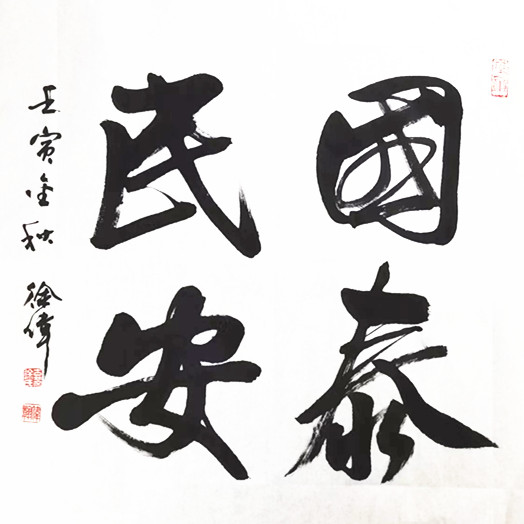 國泰
民安
壬寅金秋 徐偉